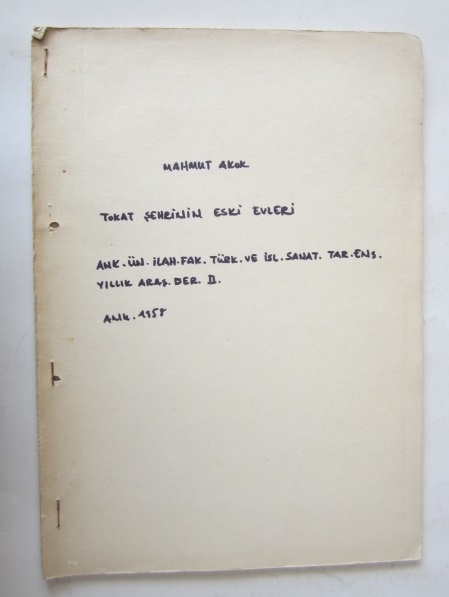 MAHMUT AKOK
TOKAT ŞEHRİNİN ESKİ EVLERİ
ANK.ÜN.İLAH.FAK.TÜRK.VE İSL.SANAT.TAR.ENS.
YILLIK ARAŞ.DER. II.
ANK.1958